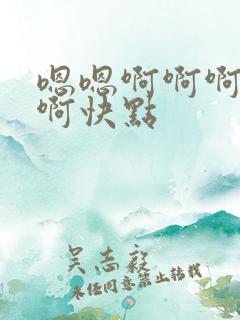 嗯嗯啊啊啊
啊快點
吴志毅
未经同意禁止转载